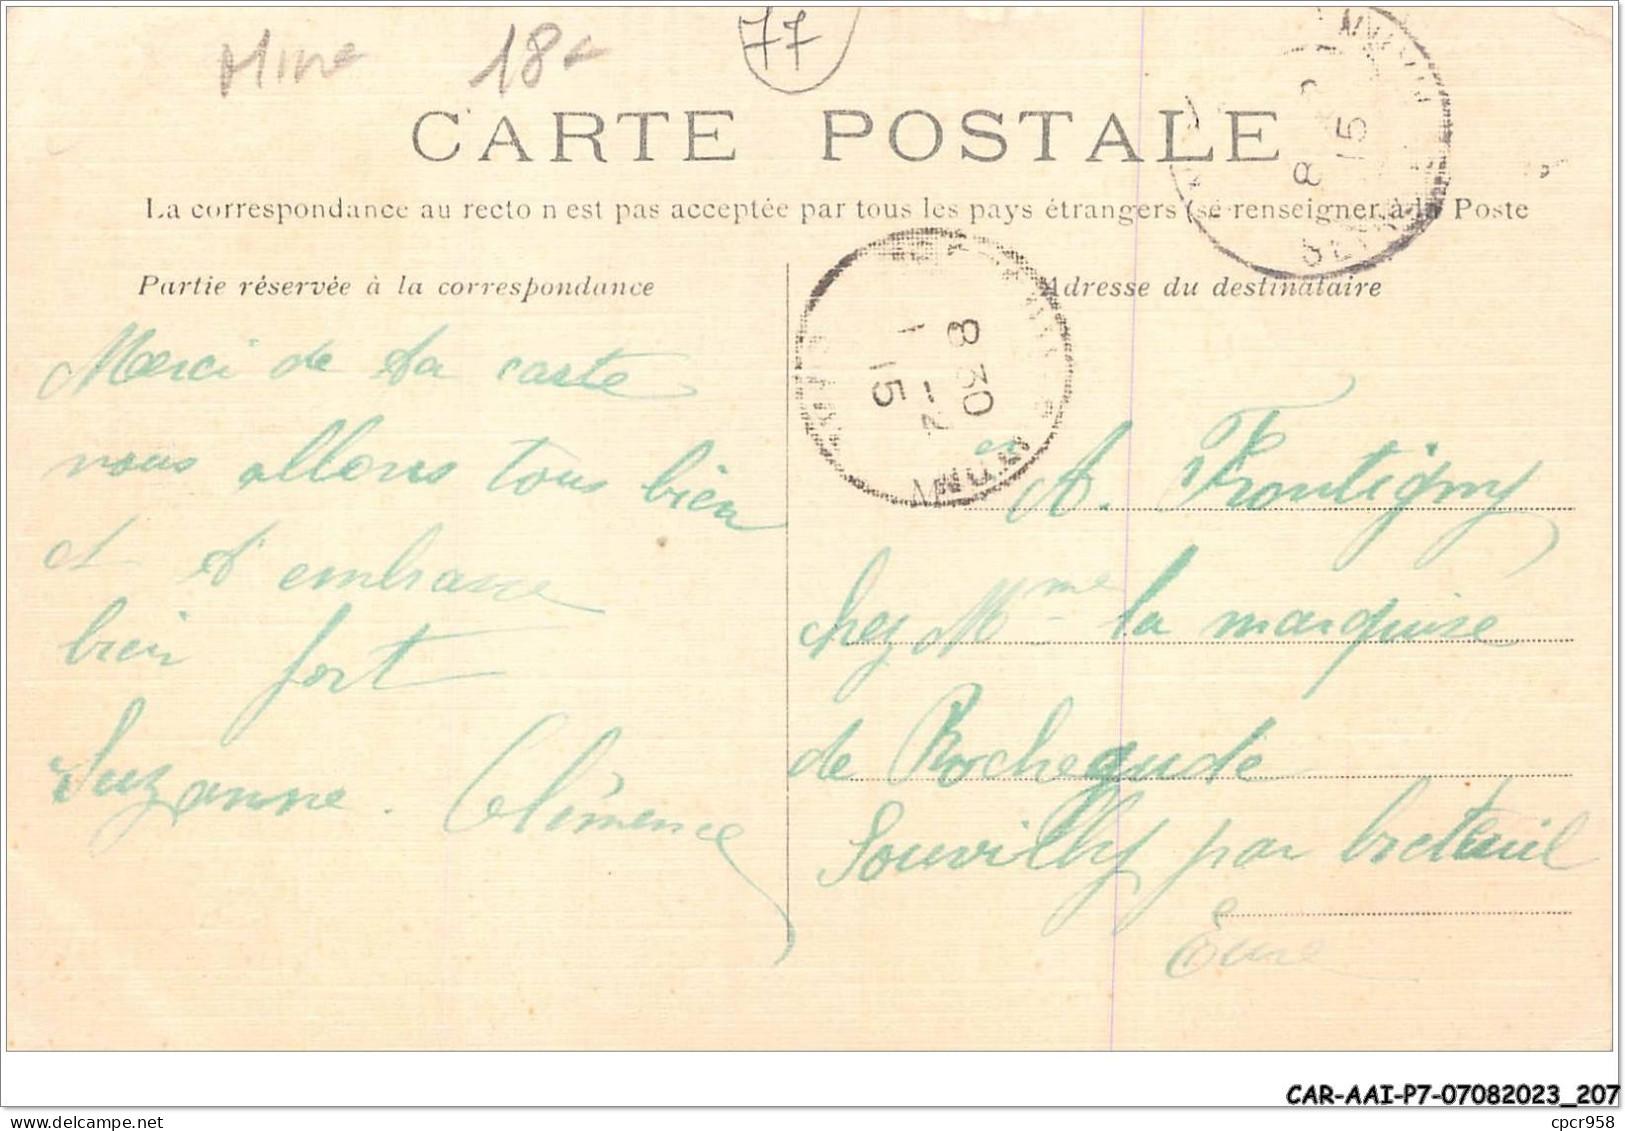 Mine 18e
77
CARTE POSTALE
La correspondance au recto n est pas acceptée par tous les pays étrangers (se renseigner à la Poste
Partie réservée à la correspondance
Adresse du destinataire
Merci de ta carte
nous allons tous bien
et t'embrasse
bien fort
Suzanne. Clémence
8 30
1 -2
15
MELUN
A. Frontigny
chez Mme la marquise
de Rochegude
Souvilly par breteuil
Eure
CAR-AAI-P7-07082023_207
cpcr958